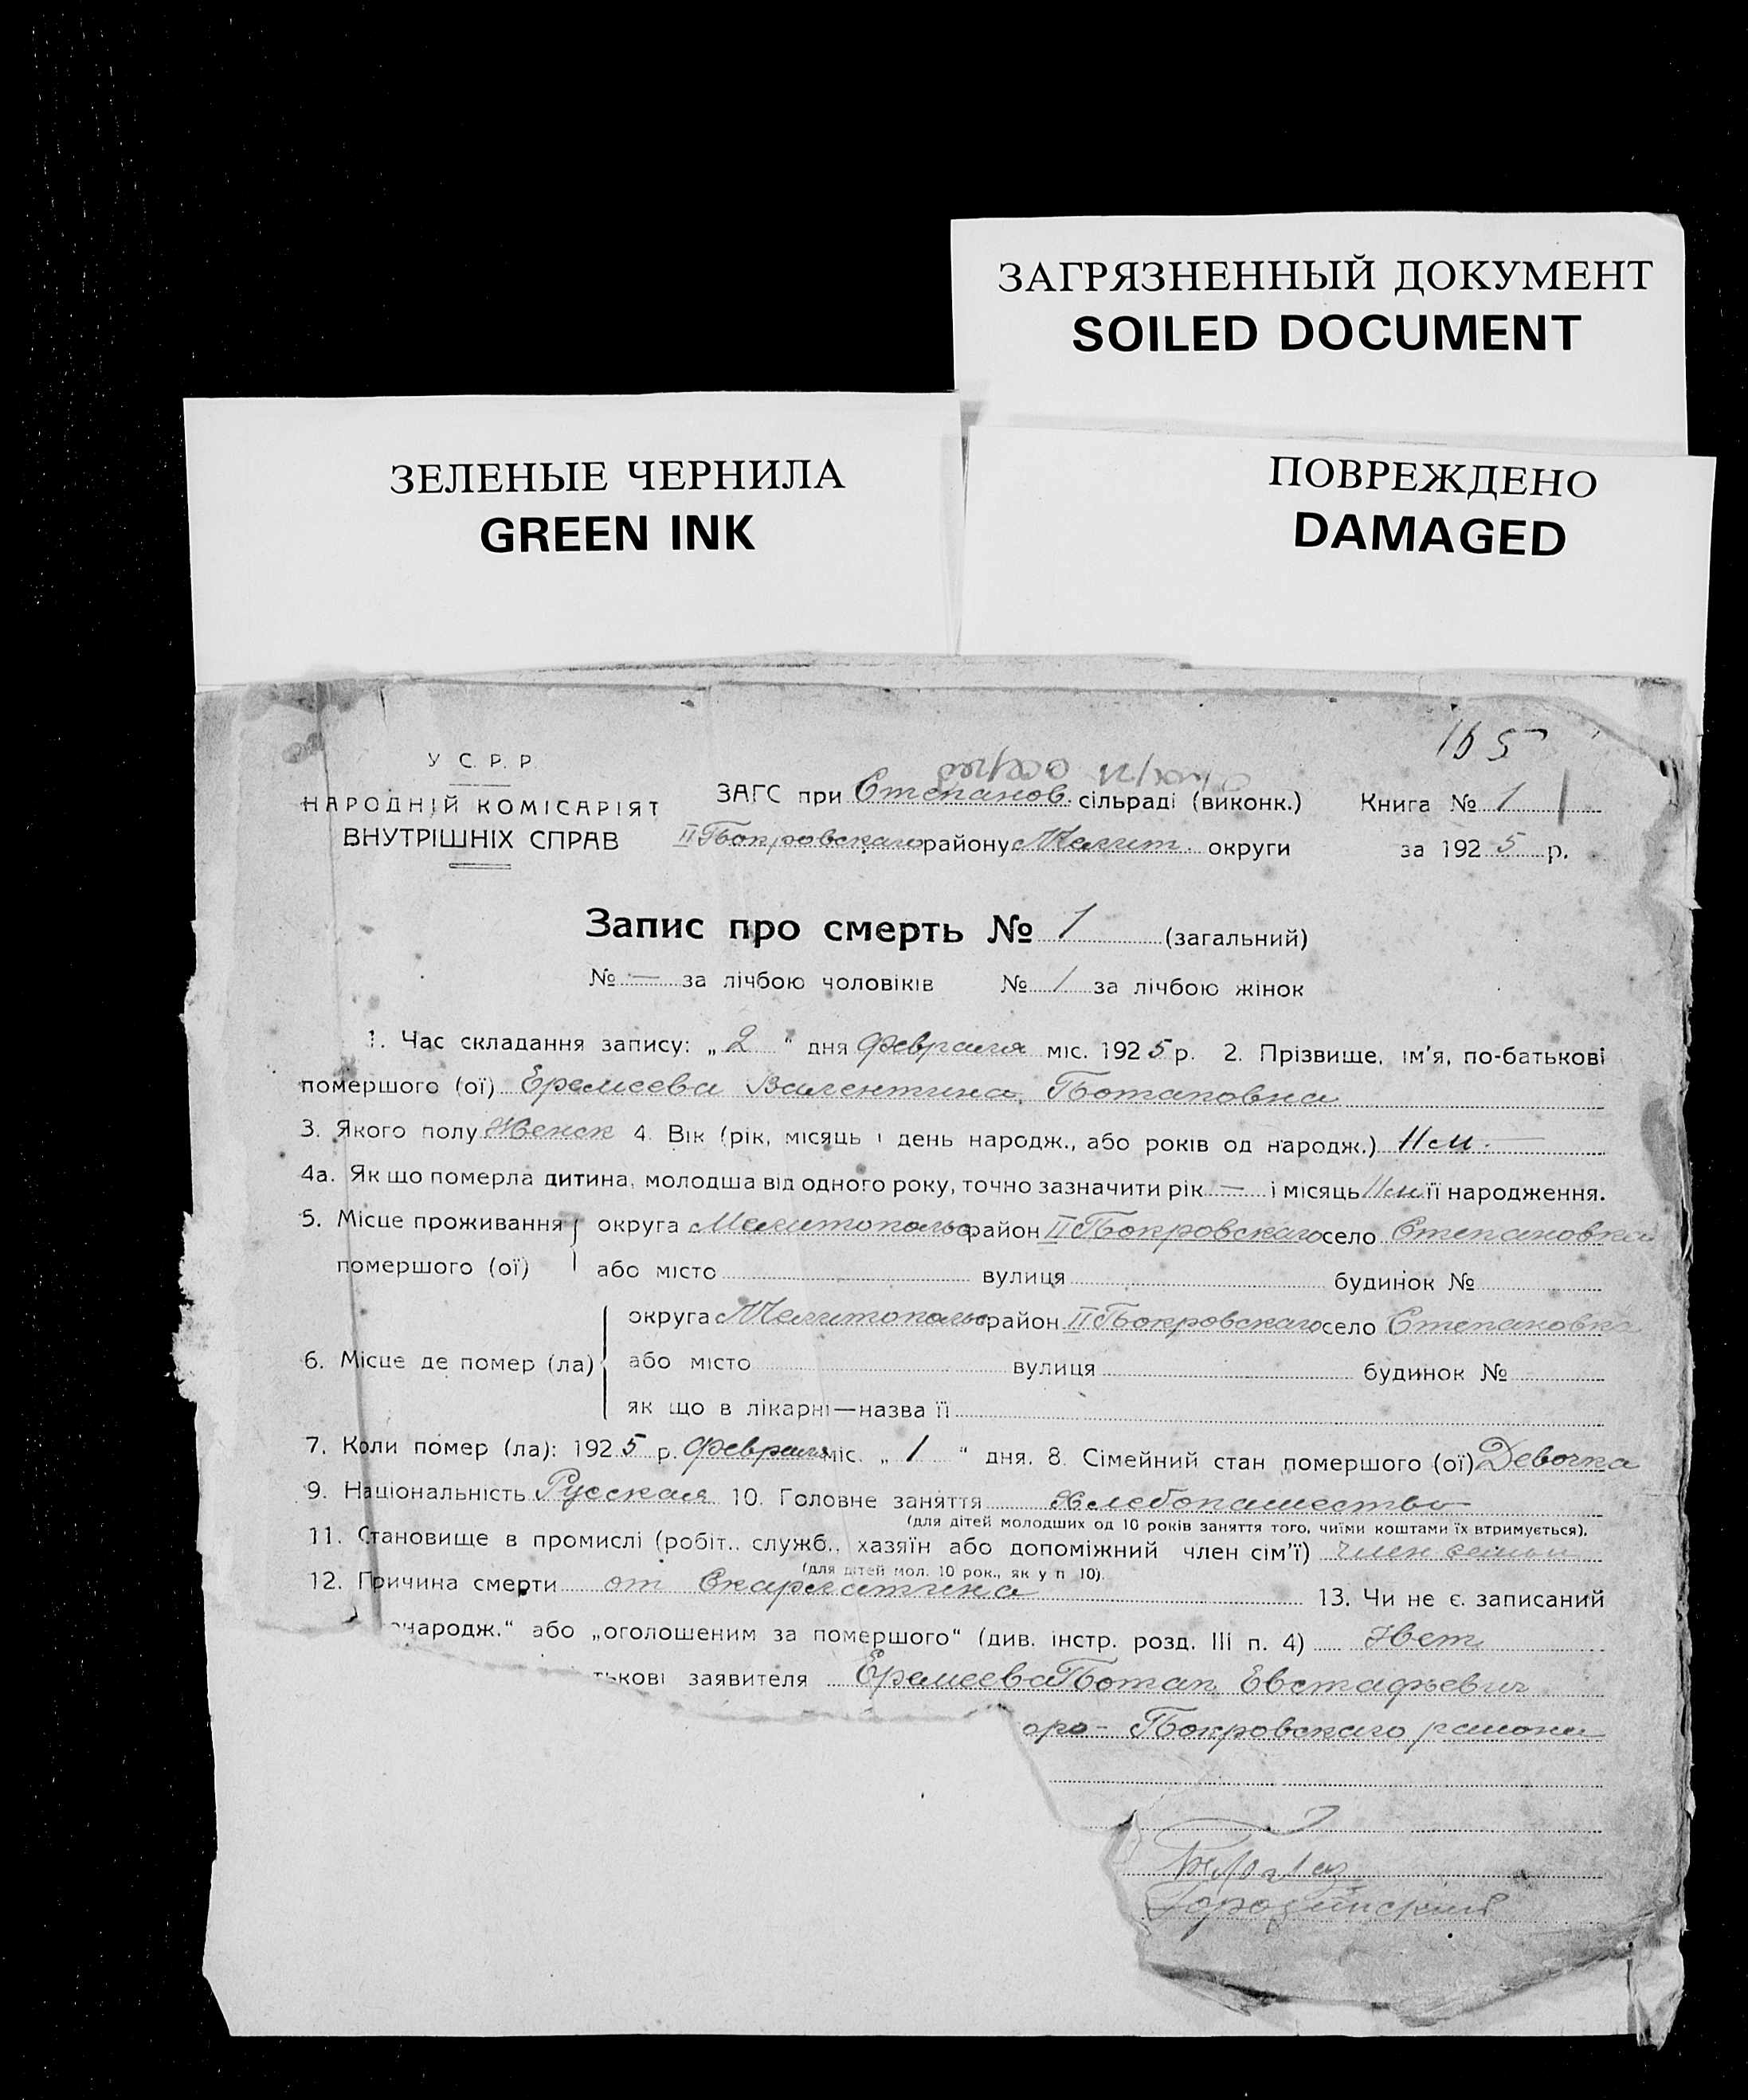 ЗАГРЯЗНЕННЫЙ ДОКУМЕНТ
SOILED DOCUMENT
ЗЕЛЕНЫЕ ЧЕРНИЛА
GREEN INK
ПОВРЕЖДЕНО
DAMAGED
165
У С. Р. Р.
НАРОДНІЙ КОМІСАРІЯТ
ВНУТРІШНІХ СПРАВ
ЗАГС при Степанов. сільраді (виконк.)
II Покровскаго району Мелит. округи
Книга № 1
за 1925 р.
Запис про смерть № 1 (загальний)
№ — за лічбою чоловіків № 1 за лічбою жінок
1. Час складання запису: „2“ дня февраля міс. 1925 р. 2. Прізвище, ім'я, по-батькові
помершого (ої) Еремеева Валентина Потаповна
3. Якого полу Женск 4. Вік (рік, місяць і день народж., або років од народж.) 11 м. —
4а. Як що померла дитина, молодша від одного року, точно зазначити рік — і місяць 11 м її народження.
5. Місце проживання помершого (ої) округа Мелитопольс район II Покровскаго село Степановка
або місто вулиця будинок №
6. Місце де помер (ла) округа Мелитопольс район II Покровскаго село Степановка
або місто вулиця будинок №
як що в лікарні—назва її
7. Коли помер (ла): 1925 р. февраля міс. „1“ дня. 8. Сімейний стан помершого (ої) Девочка
9. Національність Русская 10. Головне заняття Хлебопашество
(для дітей молодших од 10 років заняття того, чиїми коштами їх втримується).
11. Становище в промислі (робіт., служб., хазяїн або допоміжний член сім'ї) член семьи
(для дітей мол. 10 рок., як у п 10).
12. Причина смерти от Скарлатина 13. Чи не є. записаний
народж.“ або „оголошеним за помершого“ (див. інстр. розд. III п. 4) Нет
тькові заявителя Еремеева Потап Евстафьевич
оро- Покровскаго района